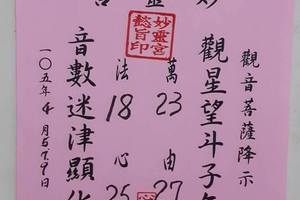 觀音菩薩降示
觀星望斗子
妙靈宮
懿旨印
萬 23 由 27
法 18 心 25
音數迷津顯化
一〇五年4月5.7.9日